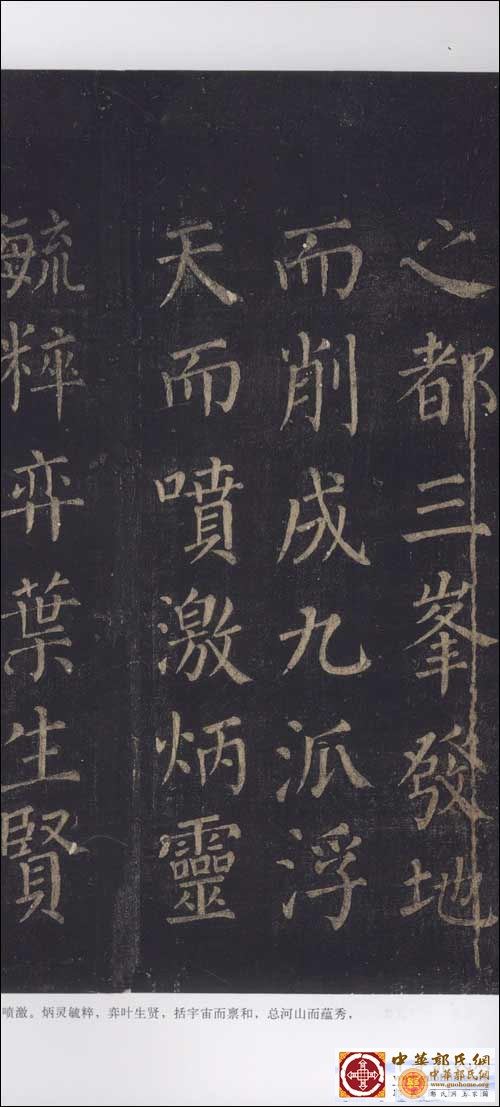 之都三峯發地
而削成九派浮
天而噴激炳靈
毓粹弈葉生賢
喷激。炳灵毓粹，弈叶生贤，括宇宙而禀和，总河山而蕴秀，
中華郭氏網
中華郭氏網
www.guohome.org